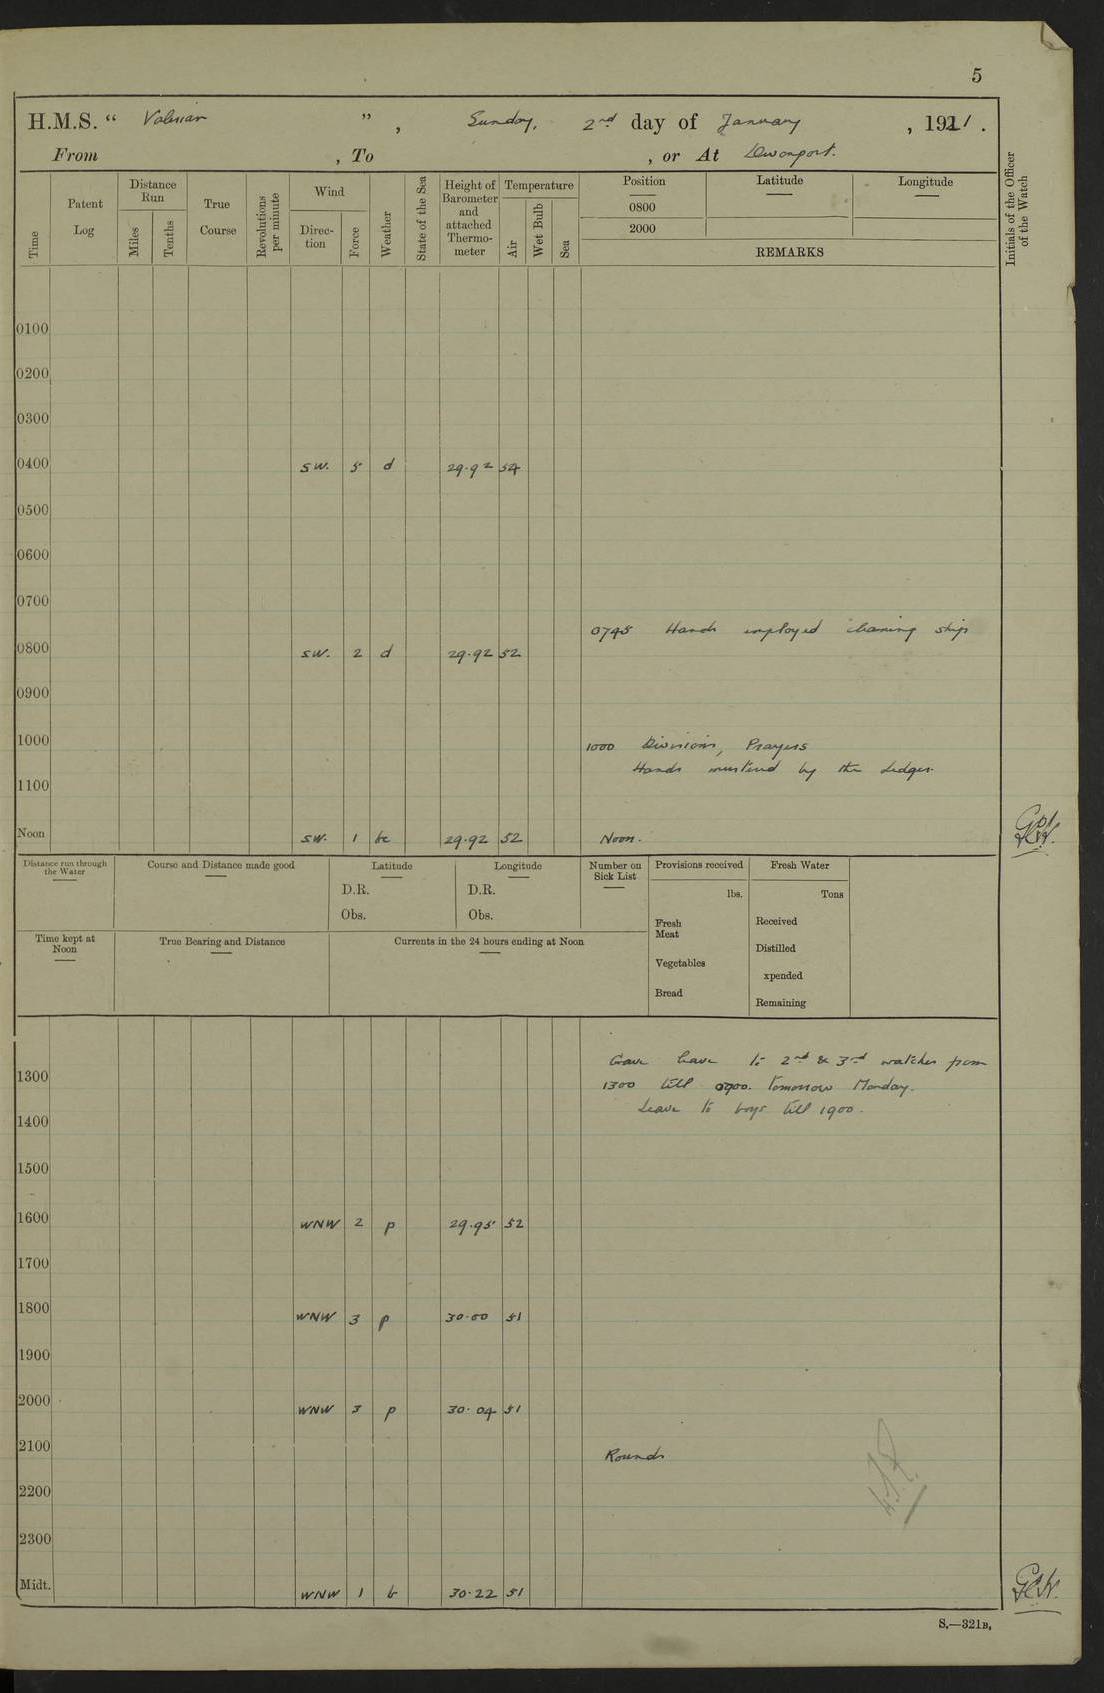 5
H.M.S. “ Valerian ” , Sunday, 2nd day of January , 1921 .
From , To , or At Devonport.
Time
Patent Log
Distance Run
Miles
Tenths
True Course
Revolutions per minute
Wind
Direc-tion
Force
Weather
State of the Sea
Height of Barometer and attached Thermo-meter
Temperature
Air
Wet Bulb
Sea
Position
Latitude
Longitude
0800
2000
REMARKS
Initials of the Officer of the Watch
0100
0200
0300
0400 SW. 5 d 29.92 54
0500
0600
0700
0745 Hands employed cleaning ship
0800 SW. 2 d 29.92 52
0900
1000 1000 Divisions, Prayers
Hands mustered by the Ledger.
1100
Noon SW. 1 bc 29.92 52 Noon.
Distance run through the Water
Course and Distance made good
Latitude
D.R.
Obs.
Longitude
D.R.
Obs.
Number on Sick List
Provisions received
lbs.
Fresh Meat
Vegetables
Bread
Fresh Water
Tons
Received
Distilled
xpended
Remaining
Time kept at Noon
True Bearing and Distance
Currents in the 24 hours ending at Noon
Gave leave to 2nd & 3rd watches from
1300 1300 till 0700. tomorrow Monday.
Leave to boys till 1900.
1400
1500
1600 WNW 2 p 29.95 52
1700
1800 WNW 3 p 30.00 51
1900
2000 WNW 3 p 30.04 51
2100 Rounds
2200
2300
Midt. WNW 1 b 30.22 51
S.—321B.